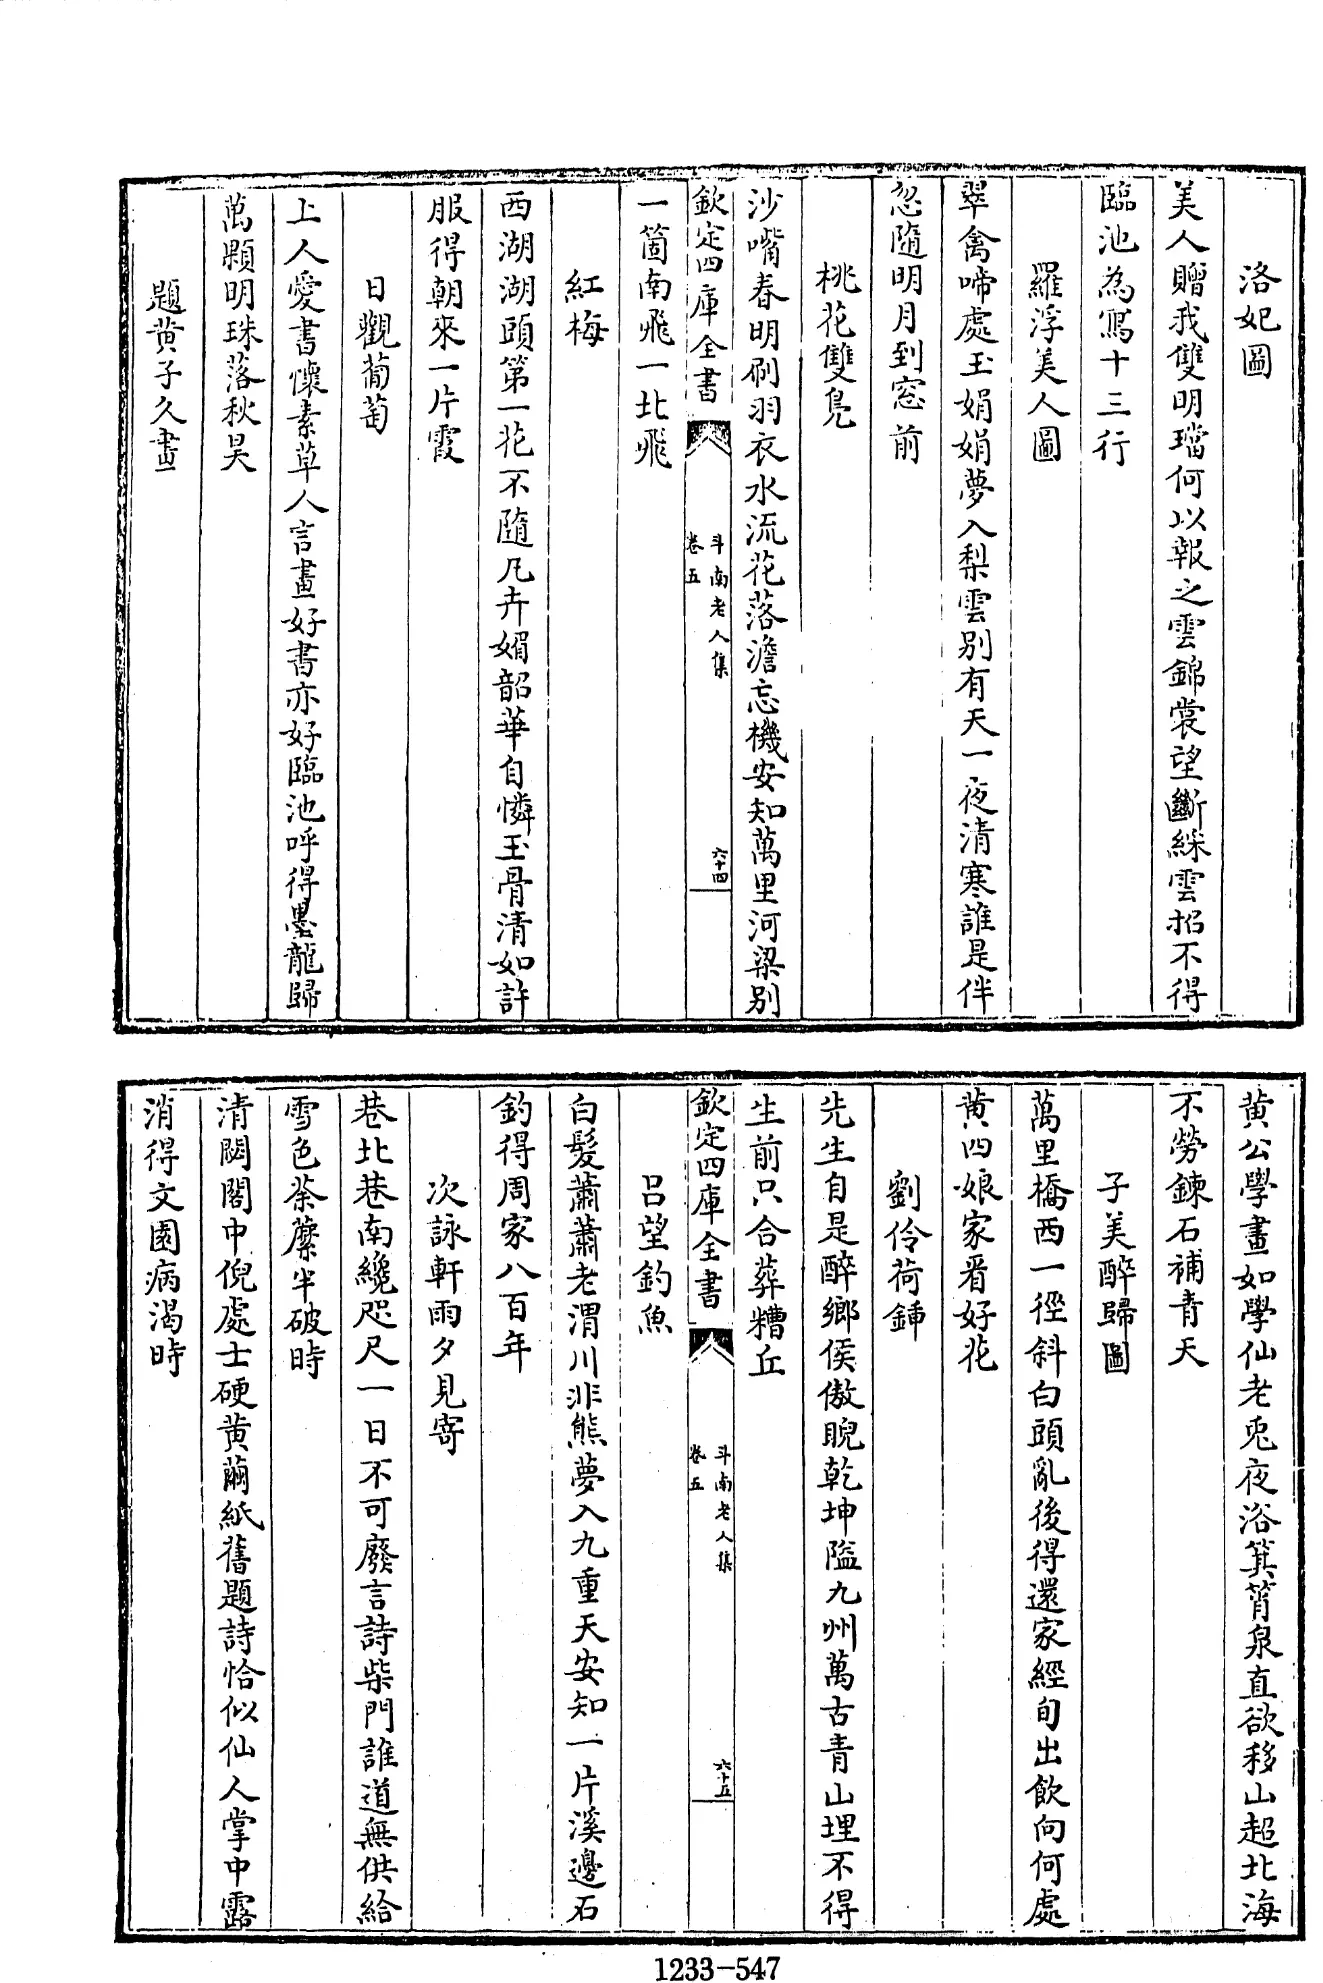 洛妃圖
美人贈我雙明璫何以報之雲錦裳望斷綵雲招不得
臨池為寫十三行
羅浮美人圖
翠禽啼處玉娟娟夢入梨雲别有天一夜清寒誰是伴
忽隨明月到窓前
桃花雙鳬
沙嘴春明刷羽衣水流花落澹忘機安知萬里河梁别
欽定四庫全書
斗南老人集
卷五
六十四
一箇南飛一北飛
紅梅
西湖湖頭第一花不隨凡卉媚韶華自憐玉骨清如許
服得朝來一片霞
日觀葡萄
上人愛書懷素草人言畫好書亦好臨池呼得墨龍歸
萬顆明珠落秋昊
題黄子久畫
黄公學畫如學仙老兎夜浴箕筲泉直欲移山超北海
不勞鍊石補青天
子美醉歸圖
萬里橋西一徑斜白頭亂後得還家經旬出飲向何處
黄四娘家看好花
劉伶荷鍤
先生自是醉鄉侯傲睨乾坤隘九州萬古青山埋不得
生前只合葬糟丘
欽定四庫全書
斗南老人集
卷五
六十五
吕望釣魚
白髮蕭蕭老渭川非熊夢入九重天安知一片溪邊石
釣得周家八百年
次詠軒雨夕見寄
巷北巷南纔咫尺一日不可廢言詩柴門誰道無供給
雪色荼蘼半破時
清閟閣中倪處士硬黄繭紙舊題詩恰似仙人掌中露
消得文園病渴時
1233-547